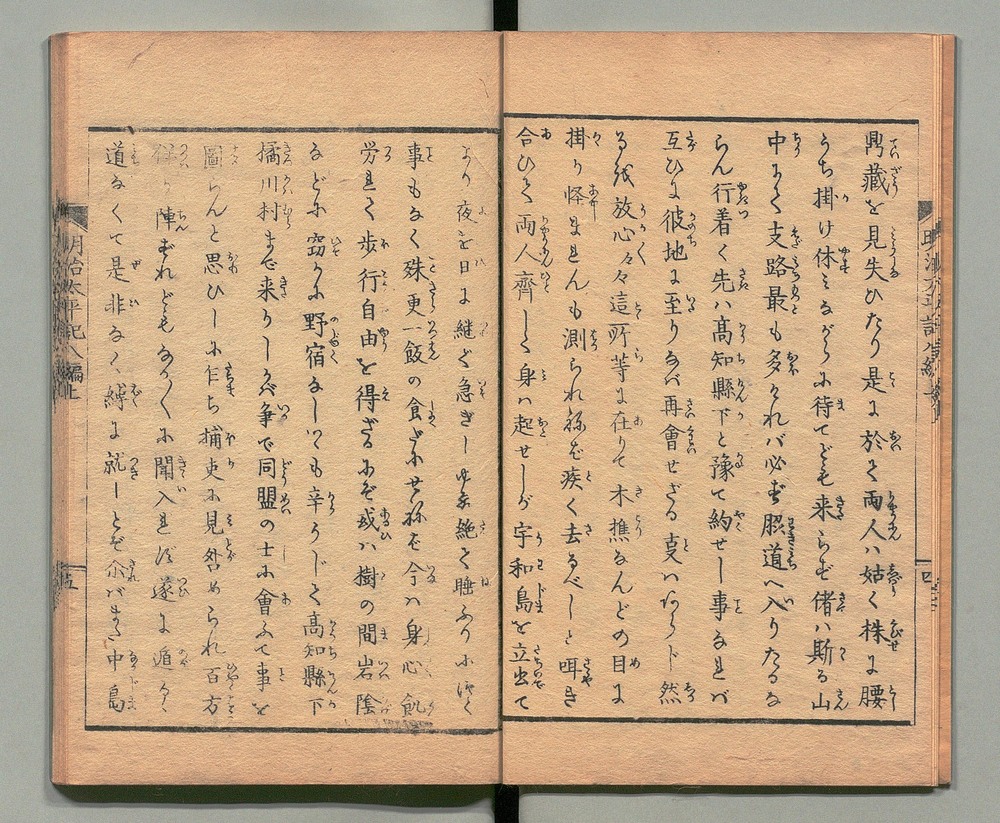 鼎藏を見失ひたり是に於て両人ハ姑く株に腰
うち掛け休ミながらに待てども来らず偖ハ斯る山
中にて支路最も多ければ必ず脇道へ入りたるな
らん行着く先ハ高知縣下と豫て約せし事なれバ
互ひに彼地に至りなバ再會せざる支ハあらじ然
る伐放心々々這所等に在りて木樵なんどの目に
掛り怪まれんも測られねば疾く去るべしと咡き
合ひて両人齊しく身ハ起せしが宇和島を立出て
より夜を日に継ぎ急ぎしゆゑ絶て睡ふりに就く
事もなく殊更一飯の食だにせねば今ハ身心飢
労れて歩行自由を得ざるにぞ或ハ樹の間岩陰
などに窃かに野宿なしつゝも辛うじて高知縣下
橘川村まで来りしが争で同盟の士に會ふて事を
圖らんと思ひしに乍ち捕吏に見咎められ百方
陣ずれどもなか〱に聞入れず遂に遁るゝ
道なくて是非なく縛に就しとぞ尒バまた中島
明治太平記八編上
四
五